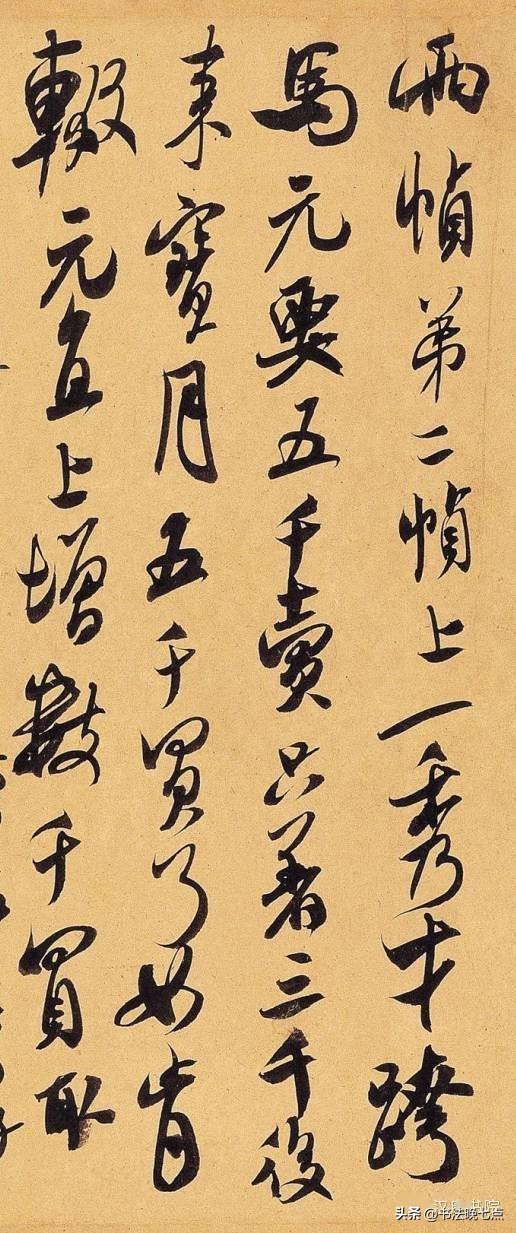 兩幀弟二幀上一秀才跨
馬元要五千賣只著三千後
來寶月五千買了如肯
輟元直上增數千買取
头条 @书法晚七点